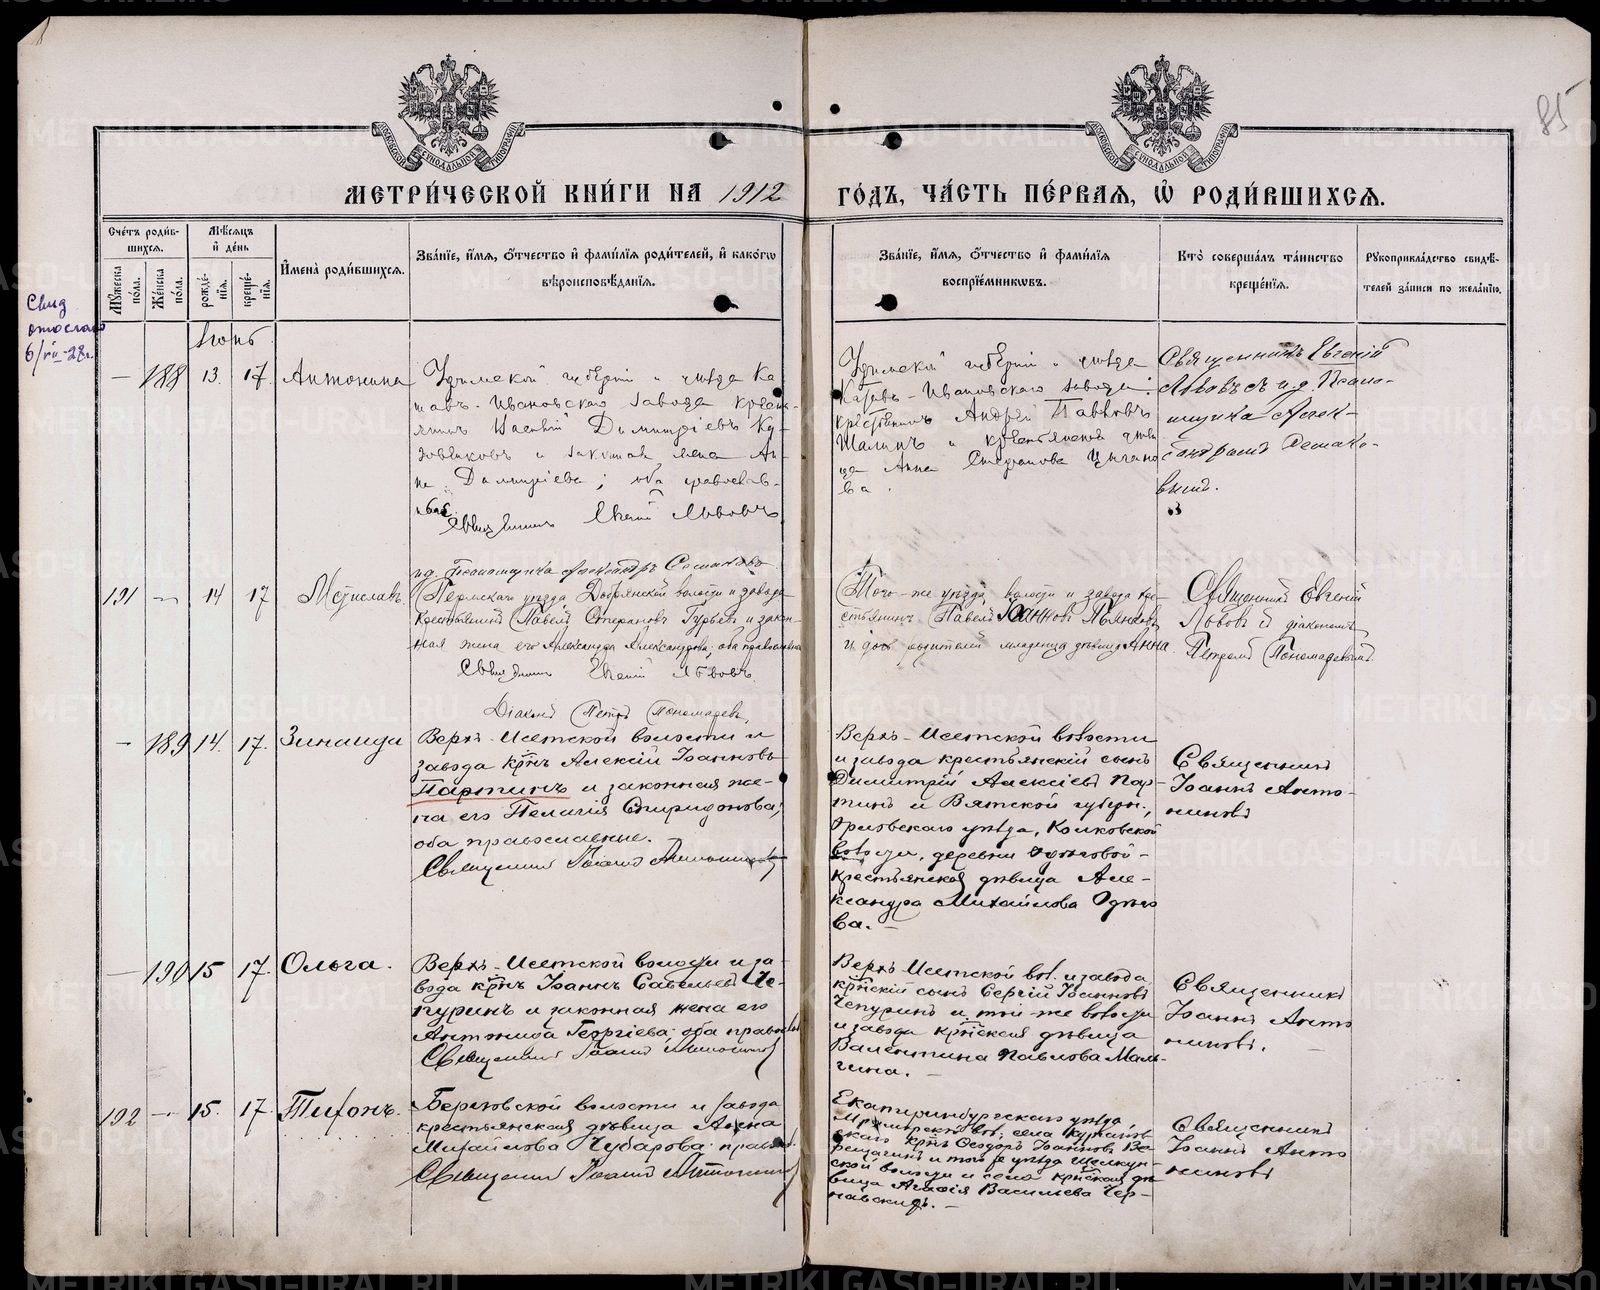 85
МЕТРИ́ЧЕСКОЙ КНИ́ГИ НА 1912
ГО́ДЪ, ЧА́СТЬ ПЕ́РВАЯ, Ѽ РОДИ́ВШИХСЯ.
Сче́тъ роди́вшихся.
Му́жеска по́ла.
Же́нска по́ла.
Мѣ́сяцъ и҆ де́нь
рожде́нїя.
креще́нїя.
И҆мена̀ роди́вшихся.
Зва́нїе, и҆́мя, ѻ҆́тчество и҆ фами́лїя роди́телей, и҆ како́гѡ
вѣроисповѣ́данїя.
Зва́нїе, и҆́мя, ѻ҆́тчество и҆ фами́лїя
воспрїе́мникѡвъ.
Кто̀ соверша́лъ та́инство
креще́нїя.
Рукоприкла́дство свидѣ́-
телей за́писи по жела́нїю.
Свид
отослано
6/VII-28г.
Іюнь
— 188 13. 17. Антонина
Уфимской губерніи и уѣзда Ка-
тавъ-Ивановскаго завода крестья-
нинъ Димитріевъ Ку-
и законная жена Ан-
на Димитріева; оба православ-
ные.
Священникъ Евгеній Львовъ
и.д. Псаломщика Александръ
Уфимской губерніи и уѣзда
Катавъ-Ивановскаго завода
крестьянинъ Андрей Павловъ
Шалинъ и крестьянская дѣви-
ца Анна Стефанова Цыгано-
ва.
Священникъ Евгеній
Львовъ съ и.д. Псало-
мщика Алек-
сандромъ
191 — 14 17 Мстиславъ
Пермскаго уѣзда Добрянской волости и завода
крестьянинъ Павелъ Стефановъ Гурьевъ и закон-
ная жена его Александра Александрова; оба православные
Священникъ Евгеній Львовъ
Діаконъ Петръ Пономаревъ
Того-же уѣзда, волости и завода кре-
стьянинъ Павелъ Іоанновъ Пьянковъ
и дочь родителей младенца дѣвица Анна
Священникъ Евгеній
Львовъ съ діакономъ
Петромъ Пономаревымъ
— 189 14. 17. Зинаида
Верхъ-Исетской волости и
завода кр̃нъ Алексій Іоанновъ
Партинъ и законная же-
на его Пелагія Спиридонова;
оба православные.
Священникъ Іоаннъ Антониновъ
Верхъ-Исетской волости
и завода крестьянскій сынъ
Димитрій Алексіевъ Пар-
тинъ и Вятской губерн.,
Орловскаго уѣзда,
волости, деревни
крестьянская дѣвица Але-
ксандра Михайлова
ва.—
Священникъ
Іоаннъ Анто-
ниновъ
— 190 15 17. Ольга.
Верхъ-Исетской волости и за-
вода кр̃нъ Іоаннъ Савельевъ Че-
пуринъ и законная жена его
Антонина Георгіева; оба православ
Священникъ Іоаннъ Антониновъ
Верхъ-Исетской вол. и завода
кр̃нскій сынъ Сергій Іоанновъ
Чепуринъ и той-же волости
и завода кр̃нская дѣвица
Валентина Павлова Маль-
гина.—
Священникъ
Іоаннъ Анто
ниновъ.
192 — 15. 17. Тихонъ.
Березовской волости и завода
крестьянская дѣвица Анна
Михайлова Чубарова правосл.
Священникъ Іоаннъ Антониновъ
Екатеринбургскаго уѣзда
вол., села
скаго кр̃нъ Ѳеодоръ Іоанновъ Ве-
рещагинъ и того ж уѣзда Щелкун-
ской волости и села кр̃нская дѣ-
вица Агафія Васильева Чер-
навскихъ.—
Священникъ
Іоаннъ Анто
ниновъ